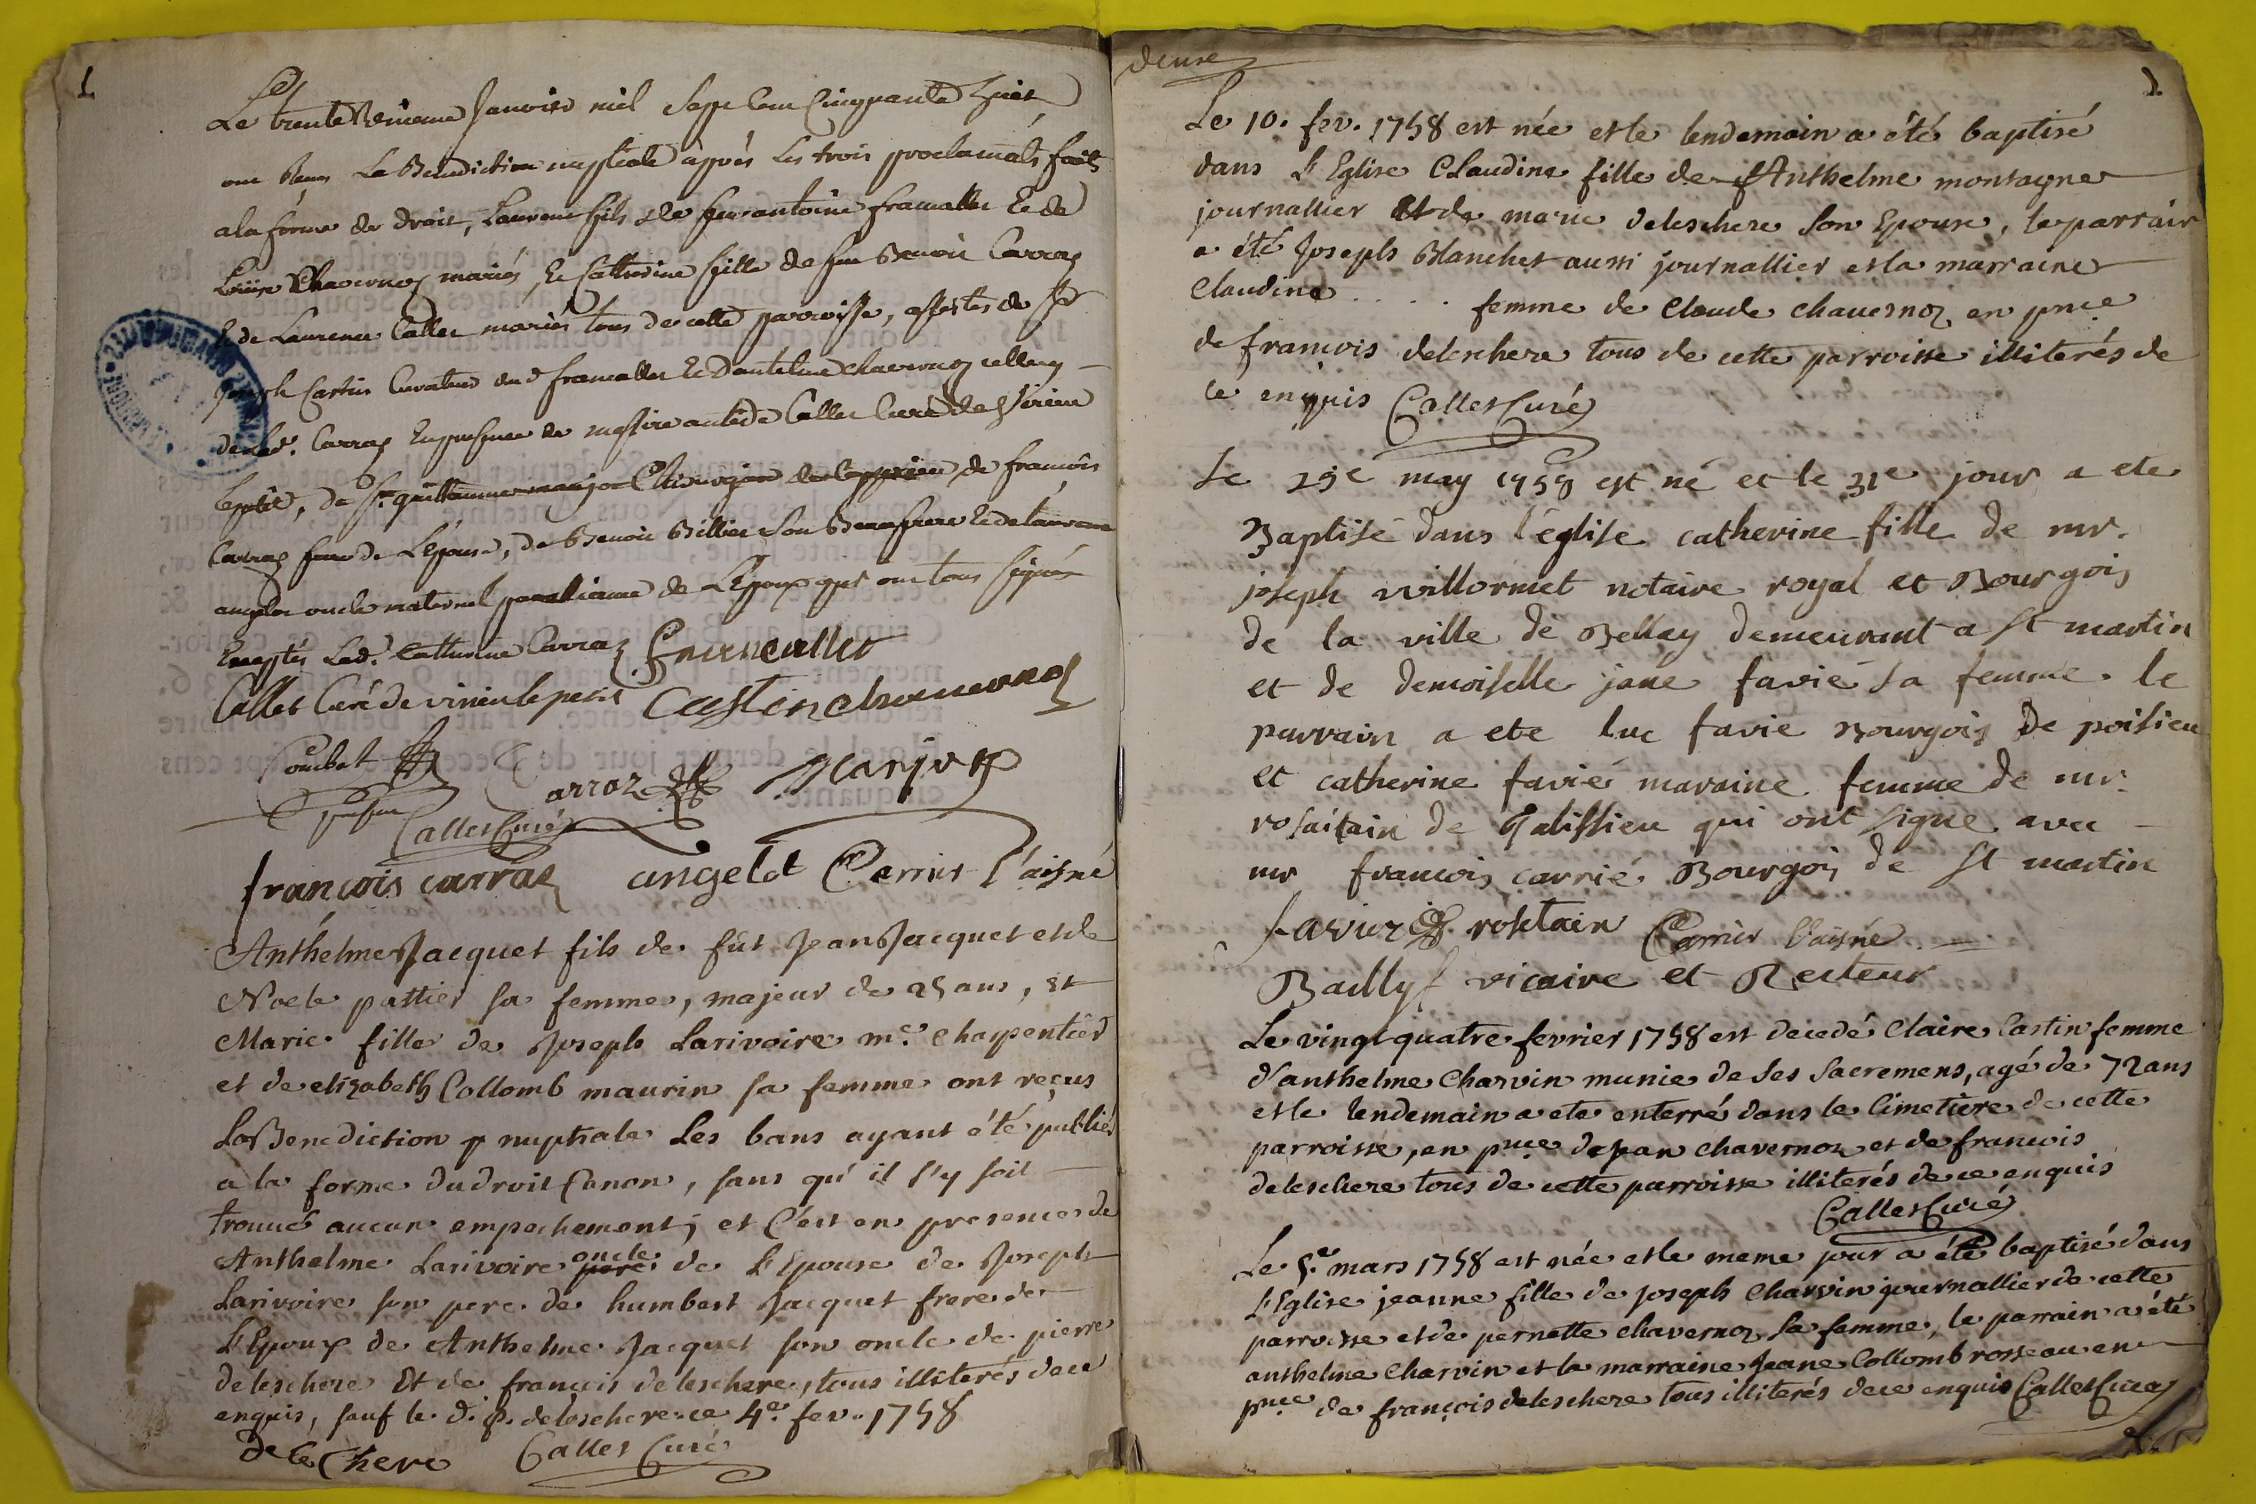 1
Le trente unieme Janvier mil Sept Cent Cinquante huit
ont Recus La Benediction nuptiale après Les trois proclamats faits
a la forme de droit, Laurent fils de feu antoine francallet Et de
Chavernoz mariés, Et Catherine fille de feu Benoit Carraz
Et de Laurence Callet mariés tous de cette parroisse, assistés de Sr
Joseph Castin Curateur dud francallet Et D'antelme chavernoz
de lad. Carraz En presence de messire Callet Curé de Virieu
le petit, de Sr guillaume manjot Chirurgien de francois
Carraz frere de L'épouse, de Benoit Billiet Son Beaufrere Et de laurent
angelot oncle maternel de L'Epoux qui ont tous signés
Exceptés Lad. Catherine Carraz francallet
Callet Curé de virieu le petit Castin chavernoz
Combet Carraz Manjot
Callet Curé
françois carraz angelot Carrier l'aisné
Anthelme Jacquet fils de fût Jean Jacquet et de
Noele pattier sa femme, majeur de 25 ans, et
Marie fille de Joseph Larivoire me. Charpentier
et de elizabeth Collomb maurin sa femme ont reçus
La Benediction nuptiale Les bans ayant été publiés
a la forme du droit Canon, sans qu'il s'y soit
trouvé aucun empechement; et C'est en presence de
Anthelme Larivoire oncle de L'Epouse de Joseph
Larivoire son pere de humbert Jacquet frere de
L'Epoux de Anthelme Jacquet son oncle de pierre
deleschere Et de françois deleschere, tous illiterés de ce
enquis, sauf le d. p. deleschere. ce 4e. fev. 1758
de le Chere Callet Curé
deuxe
1
Le 10. fev. 1758 est née et le lendemain a été baptisé
dans L'Eglise Claudine fille de Anthelme montagne
journallier Et de marie deleschere son Epouse, le parrain
a été Joseph Blanchet aussi journallier et la marraine
Claudine . . . . . femme de Claude chavernoz en pnce
de francois deleschere tous de cette parroisse illiterés de
ce enquis Callet Curé
Le 29e may 1758 est né et le 31e jour a ete
Baptisé dans l'église catherine fille de mr.
joseph willormet notaire royal et Bourgois
de la ville de Bellay demeurant a st martin
et de demoiselle jane favié sa femme. le
parrain a ete luc favie Bourgois de poisieu
et catherine favié maraine femme de mr.
rosaitain de Talissieu qui ont signe avec
mr francois carrié Bourgois de st martin
favier rostain Carrier l'aisné
Bailly vicaire et Recteur
Le vingt quatre fevrier 1758 est decedé Claire Castin femme
d'anthelme Charvin munie de ses Sacremens, agé de 72 ans
et le lendemain a ete enterré dans le Cimetiere de cette
parroisse, en pnce de jean chavernoz et de francois
deleschere tous de cette parroisse illiterés de ce enquis
Callet Curé
Le 5.e mars 1758 est née et le meme jour a été baptisé dans
L'Eglise jeanne fille de joseph Charvin journallier de cette
parroisse et de pernette chavernoz sa femme, le parrain a été
anthelme Charvin et la marraine Jeane Collomb rosseau en
pnce de françois deleschere tous illiterés de ce enquis Callet Curé